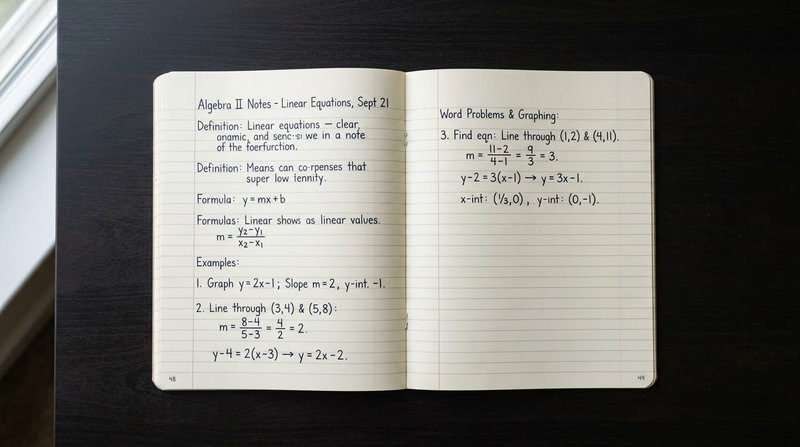 Algebra II Notes - Linear Equations, Sept 21
Definition: Linear equations — clear,
onamic, and we in a note
of the foerfunction.
Definition: Means can co-rpenses that
super low tennity.
Formula: y = mx + b
Formulas: Linear shows as linear values.
m = y₂-y₁ / x₂-x₁
Examples:
1. Graph y = 2x-1; Slope m = 2, y-int. -1.
2. Line through (3,4) & (5,8):
m = 8-4 / 5-3 = 4 / 2 = 2.
y-4 = 2(x-3) → y = 2x-2.
48
Word Problems & Graphing:
3. Find eqn: Line through (1,2) & (4,11).
m = 11-2 / 4-1 = 9 / 3 = 3.
y-2 = 3(x-1) → y = 3x-1.
x-int: (1/3,0), y-int: (0,-1).
49